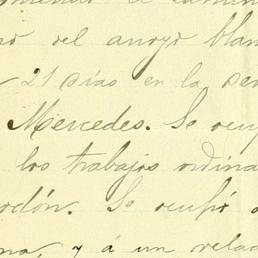 el camin
del arroyo blan
21 dias en la
Mercedes. Se ocup
los trabajos ordina
odón. Se ocupó
na, y á un relac